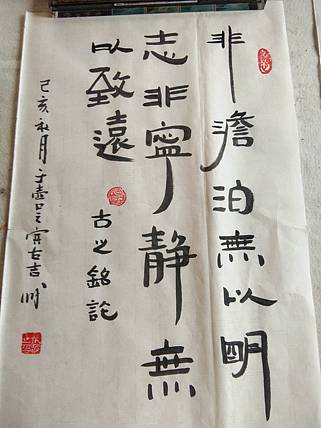 非澹泊無以明
志非寧静無
以致遠
古之銘記
己亥秋月于壺
古吉州